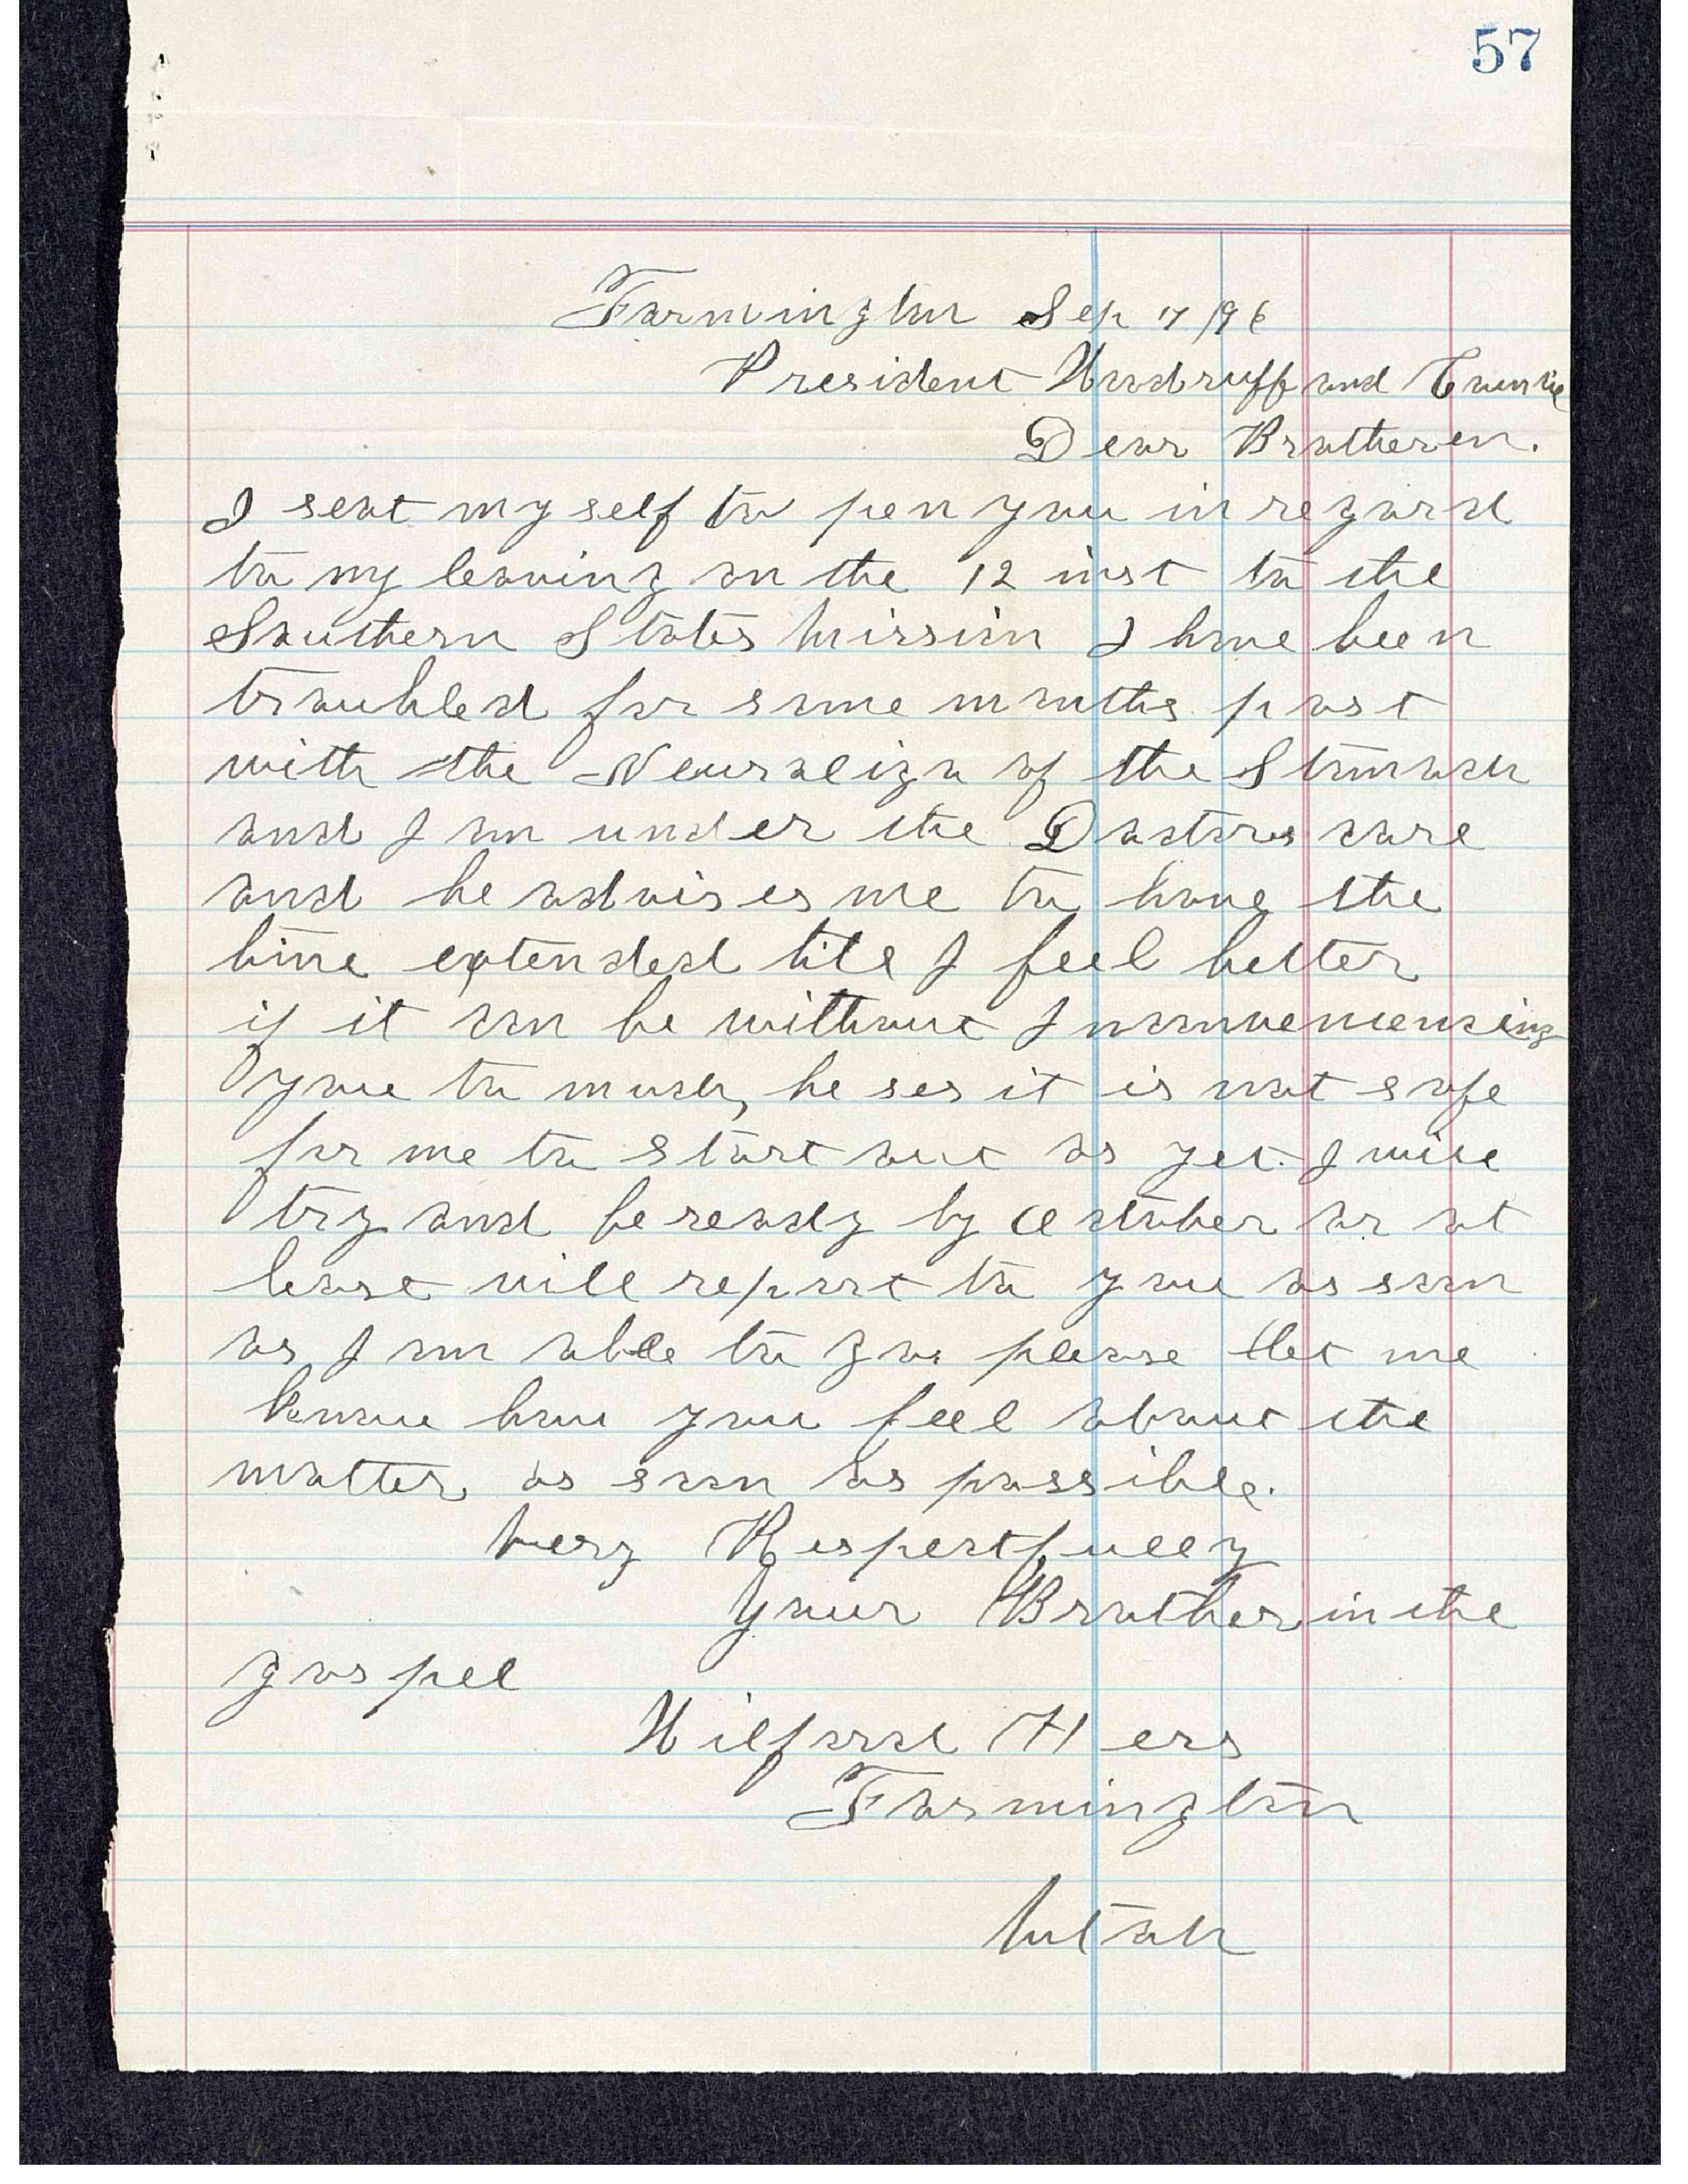 57
Farmington Sep 7/96
President Woodruff and Councile
Dear Bretheren.
I seat myself to pen you in regard
to my leaving on the 12 inst to the
Southern States Mission I have been
troubled for some months past
with the Neuraliga of the Stomach
and I am under the Doctors care
and he advises me to have the
time extended till I feel better
if it can be without Inconveniencing
you to much, he ses it is not safe
for me to start out as yet. I will
try and be ready by October or at
least will report to you as soon
as I am able to go. please let me
know how you feel about the
matter as soon as possible.
Very Respectfully
Your Brother in the
gospel
Wilford Hess
Farmington
Utah